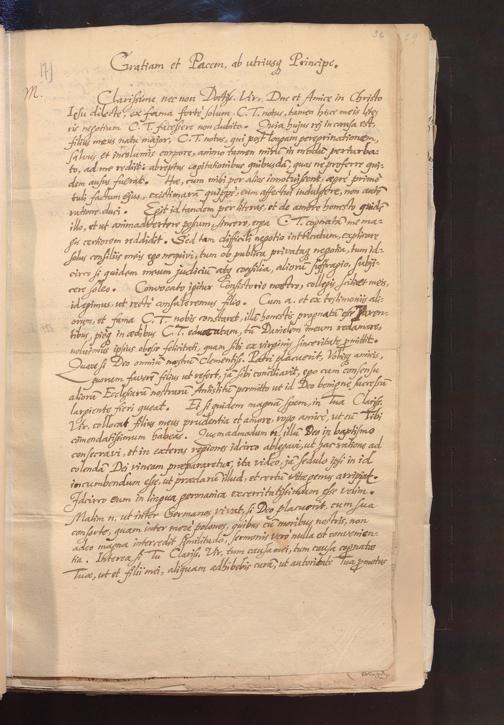 36 29
Gratiam et Pacem, ab utriusq Principe.
M.
Clarissime nec non Doctiss. Vir, Dne et Amice in Christo
Iesu dilecte, ex fama forte solum C. T. notus, tamen hisce meis lite-
ris negotium C. T. facessere non dubito. Quia hujus rei in causa est
filius meus natu major, C. T. notus, qui post longam peregrinationem,
salvus et incolumis corpore, animo tamen mirũ in modũ perturba-
to, ad me rediit: abreptus cogitationibus quibusdã, quas ne proferre qui-
dem ausus fuerat. Hæ, cum mihi per alios innotuissent, ægre primo
tuli factum ejus, existimans quippe, eum affectui indulsisse, non autẽ
ratione duci. Egit id tandem per literas, et de amore honesto quidẽ
illo, et ut animadvertere possum sincero, erga C. T. cognatã me ma-
gis certiorem reddidit. Sed tam difficili negotio intricatum, explicare
solus consiliis meis ego nequivi, tum ob publica privataq negotia, tum id-
circo si quidem meum judiciũ atq consilia, aliorũ suffragio, subjii-
cere soleo. Convocato igitur Consistorio nostro, collegis scilicet meis,
id egimus, ut recti consuleremus filio. Cum a. et ex testimoniis ali-
orum, et fama C. T. nobis constaret, illã honestis prognatã esse Paren-
tibus, pieq in ædibus C. T. educatam, tũ Danielem meum redamare,
noluimus ipsius obesse felicitati, quam sibi ex virginis sinceritate pmittit.
Quare si Deo omniũ nostrũ Clementiss. Patri placuerit, Vobisq amicis,
quorum favorẽ filius ut refert, jã sibi conciliavit, ego cum consensu
aliorũ Ecclesiarũ nostrarum Antistitũ permitto ut id Deo benigne successũ
largiente fieri queat. Et si quidem magnã spem, in Tua Clariss.
Vir, collocat filius meus prudentia et amore, rogo amicè, ut eũ Tibi
cõmendatissimum habeas. Quemadmodum n. illũ Deo in baptismo
consecravi, et in exteras regiones idcirco ablegavi, ut par ratione ad
colendã Dei vineam præpararetur, ita video, jã sedulo ipsi in id
incumbendum esse, ut præclarũ illud, et certũ vitæ genus arripiat.
Idcirco eum in lingua germanica exercitatissimum esse velim.
Malim n. ut inter Germanos vivat, si Deo placuerit, cum sua
conforte, quam inter meros polonos, quibus cũ moribus nostris, non
adeo magna intercedit similitudo, sermonis vero nulla et convenien-
tia. Interea si Tu Clariss. Vir, tum causa mei, tum causa cognatæ
Tuæ, ut et filii mei, aliquam adhibebis curã, ut autoritate Tua pmotus